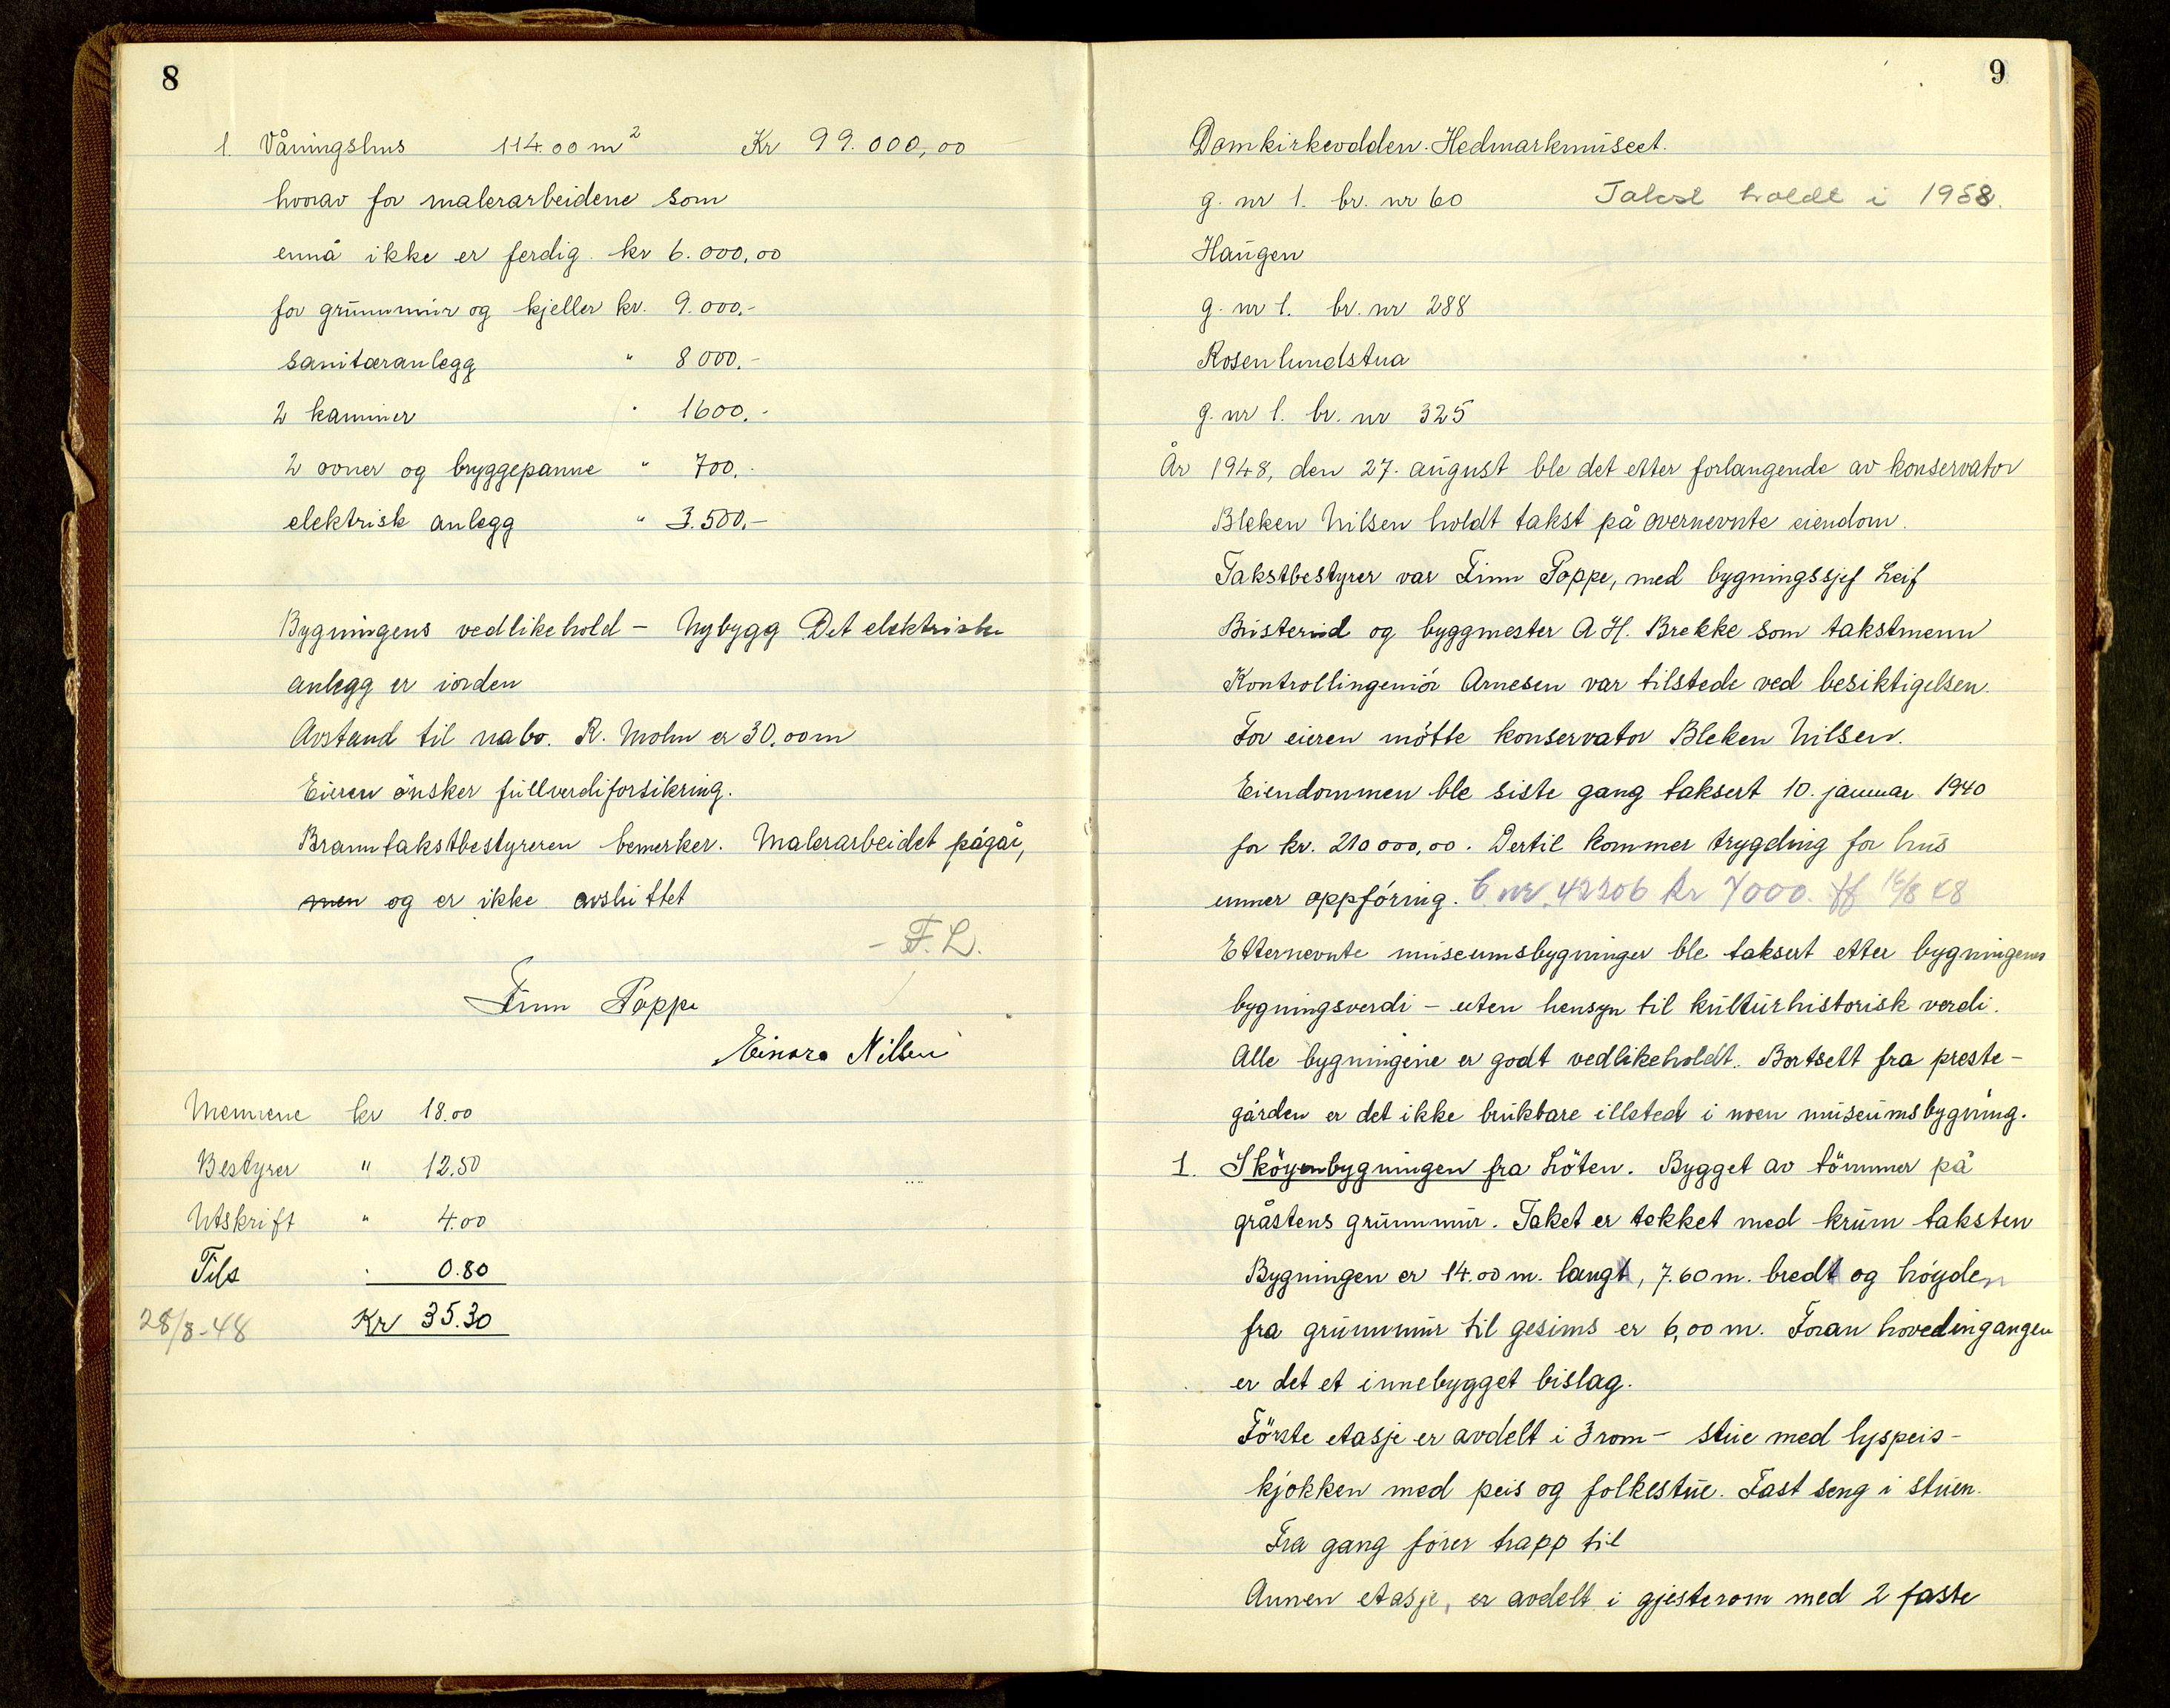 8
1. Våningshus 114.00 m² Kr 99.000,00
hvorav for malerarbeidene som
ennå ikke er ferdig. kr 6.000,00
for grunnmur og kjeller kr. 9.000,-
sanitæranlegg " 8 000.-
2 kaminer " 1600.-
2 ovner og bryggepanne " 700.-
elektrisk anlegg " 3.500.-
Bygningens vedlikehold – Nybygg Det elektriske
anlegg er iorden
Avstand til nabo. R. Mohn er 30.00 m
Eieren önsker fullverdiforsikring.
Branntakstbestyreren bemerker. Malerarbeidet pågår,
men og er ikke avsluttet
- F. L.
Finn Poppe
Einara Nilsen
Mennene kr 18.00
Bestyrer " 12.50
Utskrift " 4.00
Tils " 0.80
28/8-48 Kr 35.30
9
Domkirkeodden. Hedmarkmuseet.
g. nr 1. br. nr 60 Takst holdt i 1958.
Haugen
g. nr 1. br. nr 288
Rosenlundstua
g. nr 1. br. nr 325
År 1948, den 27. august ble det etter forlangende av konservator
Bleken Nilsen holdt takst på overnevnte eiendom.
Takstbestyrer var Finn Poppe, med bygningssjef Leif
Busterud og byggmester A H. Brekke som takstmenn
Kontrollingeniör Arnesen var tilstede ved besiktigelsen.
For eieren mötte konservator Bleken Nilsen.
Eiendommen ble siste gang taksert 10. januar 1940
for kr. 210 000,00. Dertil kommer trygding for hus
unner oppföring. B. nr. 42206 kr 7000. ff 16/8 48
Etternevnte museumsbygninger ble taksert etter bygningens
bygningsverdi – uten hensyn til kulturhistorisk verdi.
Alle bygningene er godt vedlikeholdt. Bortsett fra preste-
gården er det ikke brukbare illsted i noen museumsbygning.
1. Sköyenbygningen fra Löten. Bygget av tömmer på
gråstens grunnmur. Taket er tekket med krum taksten
Bygningen er 14.00 m. langt, 7.60 m. bredt og höyden
fra grunnmur til gesims er 6,00 m. Foran hovedingangen
er det et innebygget bislag.
Förste etasje er avdelt i 3 rom – stue med lyspeis –
kjökken med peis og folkestue. Fast seng i stuen.
Fra gang förer trapp til
Annen etasje, er avdelt i gjesterom med 2 faste